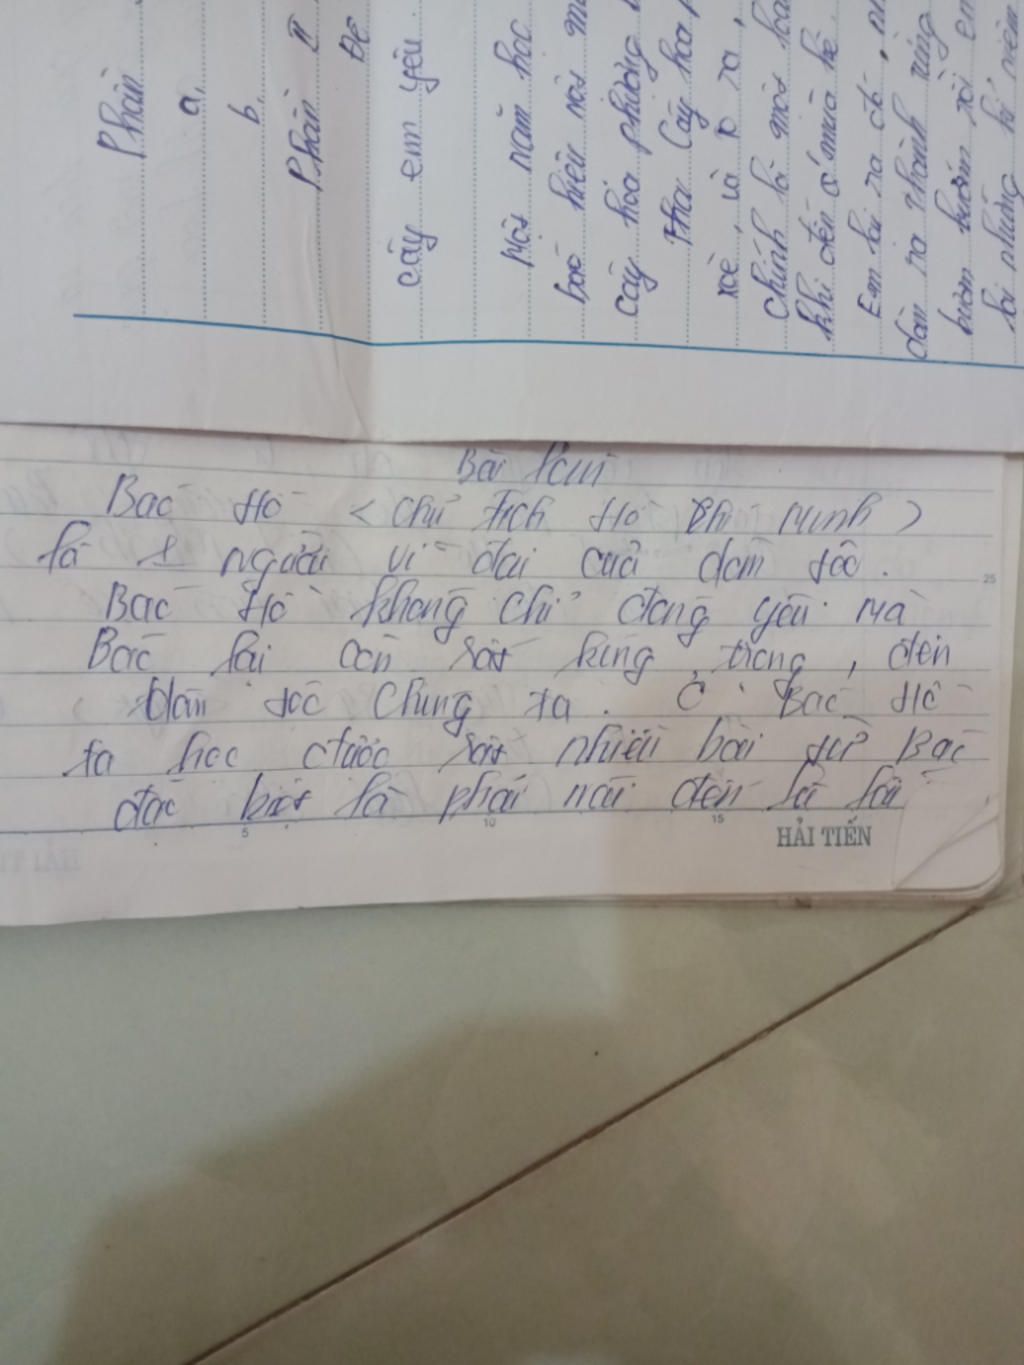 Phần
a,
b,
Phần II
Đề
cây em yêu
Một năm học
báo hiệu
cây hoa phượng
Cây hoa
xòe, là
chính là một
khi đến mùa hè.
Em lại ra
dàn ra thành
bướm bướm rồi em
lại những kỉ niệm
Bài làm
Bác Hồ <Chủ tịch Hồ Chí Minh>
là 1 người vĩ đại cuả dâm tôc.
Bác Hồ không chỉ đáng yêu mà
Bác lại còn rất kíng trọng, đến
dân tôc chúng ta. Ở Bác Hồ
ta học được rất nhiều bài từ Bác
đặc biệt là phải nói đến là
5 10 15
25
HẢI TIẾN